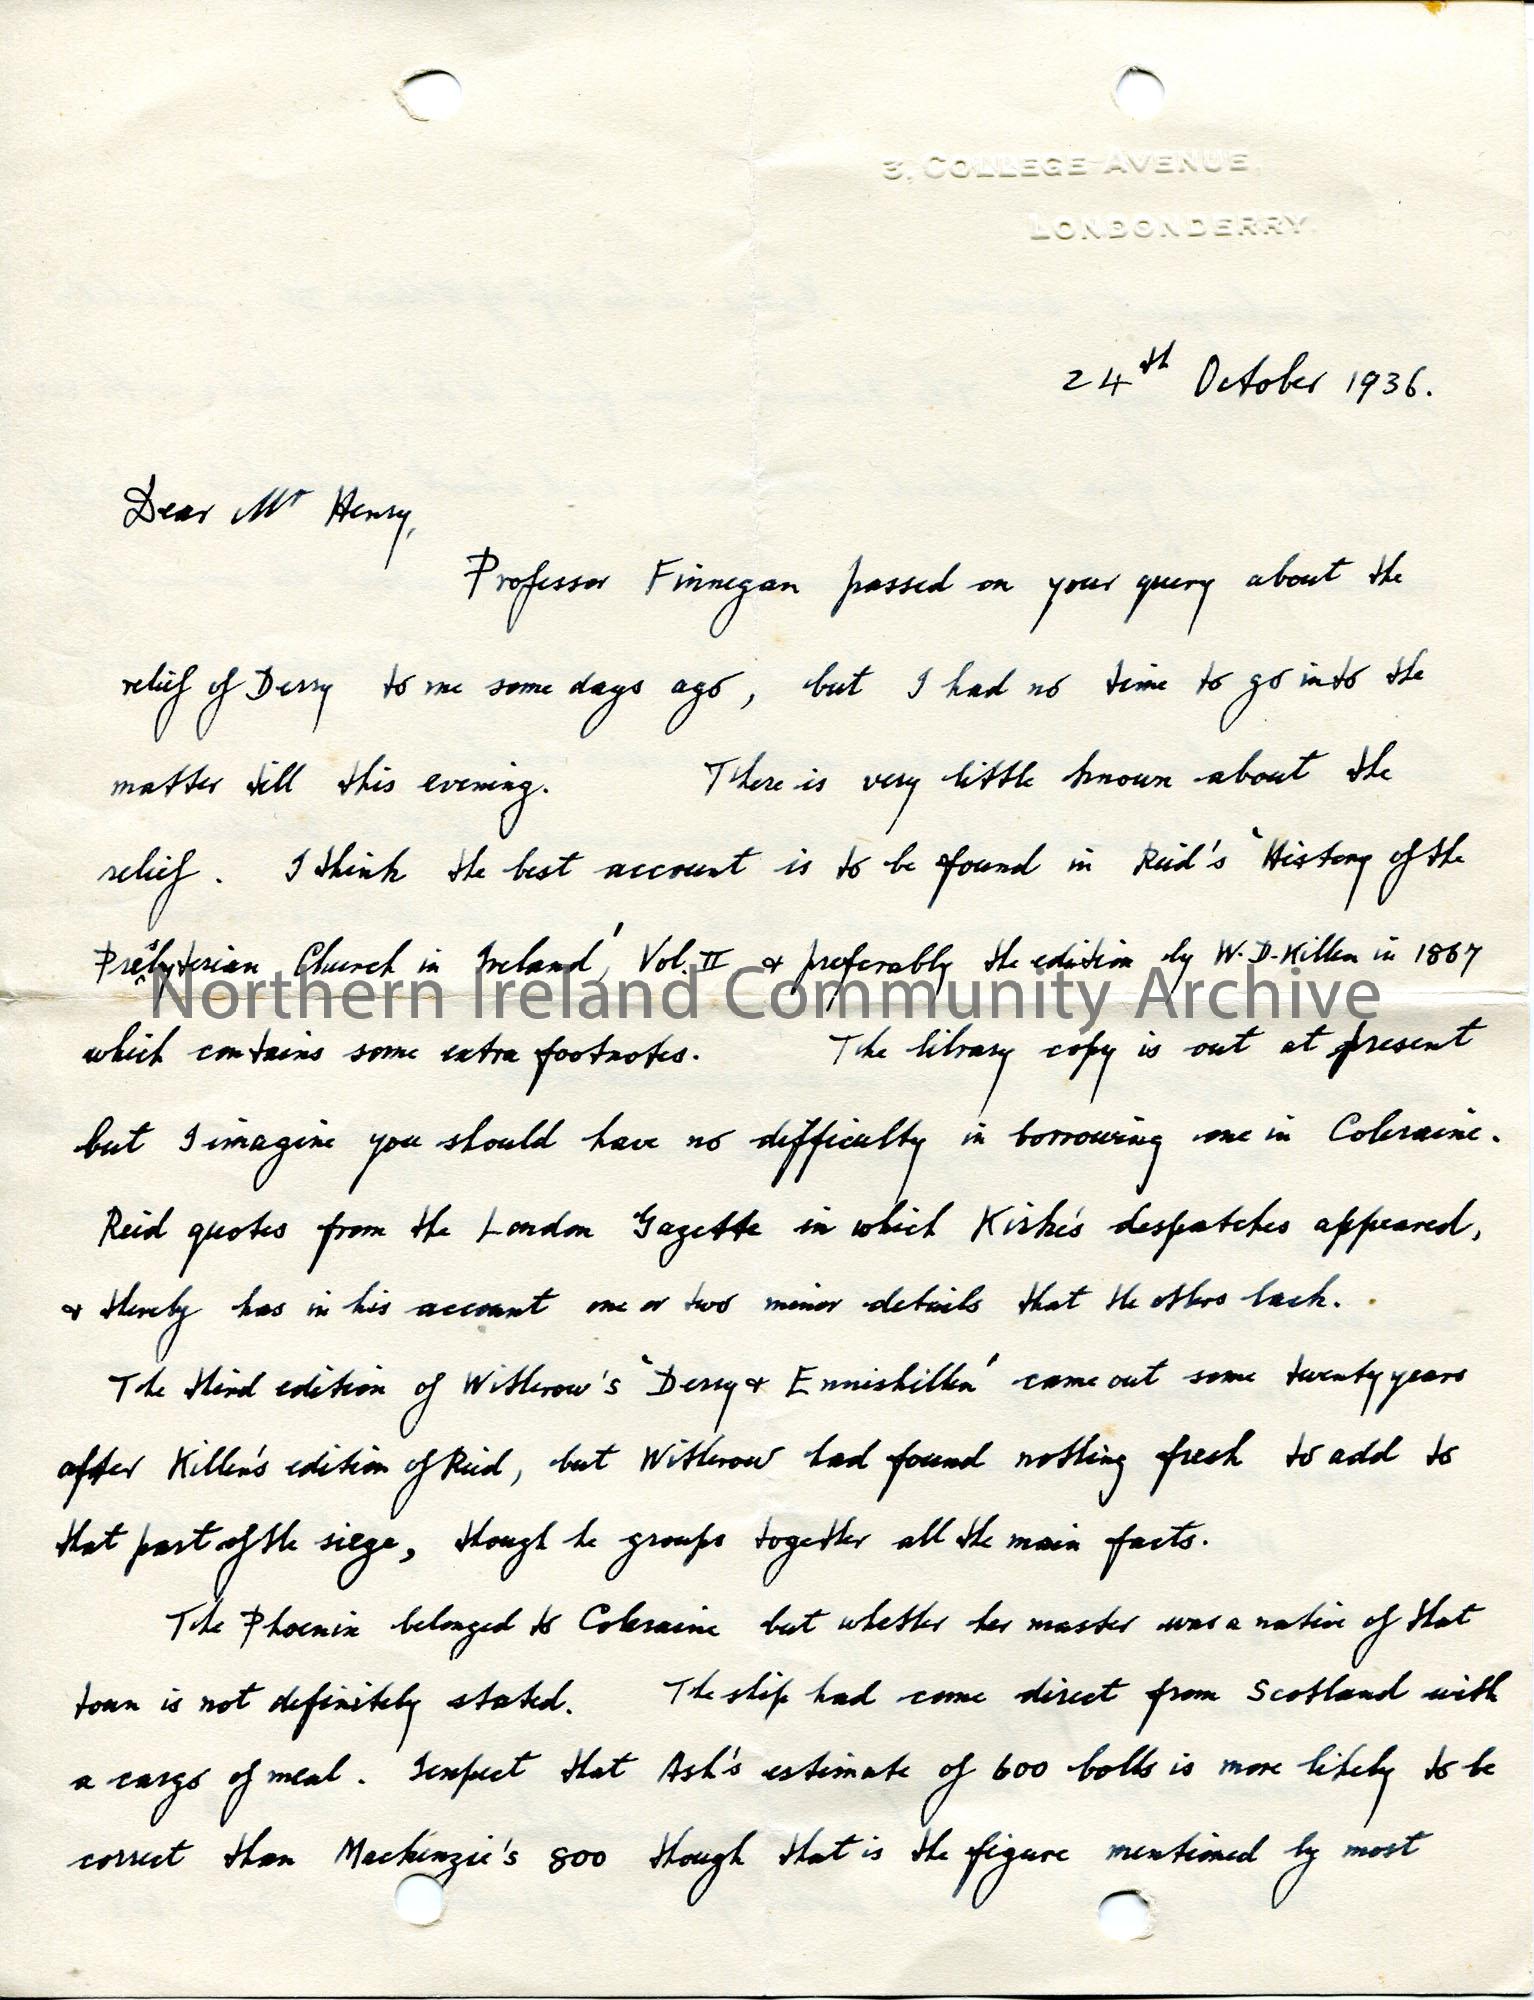 3, COLLEGE AVENUE,
LONDONDERRY.
24th October 1936.
Dear Mr Henry,
Professor Finnegan passed on your query about the
relief of Derry to me some days ago, but I had no time to go into the
matter till this evening. There is very little known about the
relief. I think the best account is to be found in Reid's 'History of the
Presbyterian Church in Ireland', Vol. II & preferably the edition by W. D. Killen in 1867
Northern Ireland Community Archive
which contains some extra footnotes. The library copy is out at present
but I imagine you should have no difficulty in borrowing one in Coleraine.
Reid quotes from the London Gazette in which Kirke's despatches appeared,
& thereby has in his account one or two minor details that the others lack.
The third edition of Witherow's 'Derry & Enniskillen' came out some twenty years
after Killen's edition of Reid, but Witherow had found nothing fresh to add to
that part of the siege, though he groups together all the main facts.
The Phoenix belonged to Coleraine but whether her master was a native of that
town is not definitely stated. The ship had come direct from Scotland with
a cargo of meal. I expect that Ash's estimate of 600 bolls is more likely to be
correct than Mackenzie's 800 though that is the figure mentioned by most